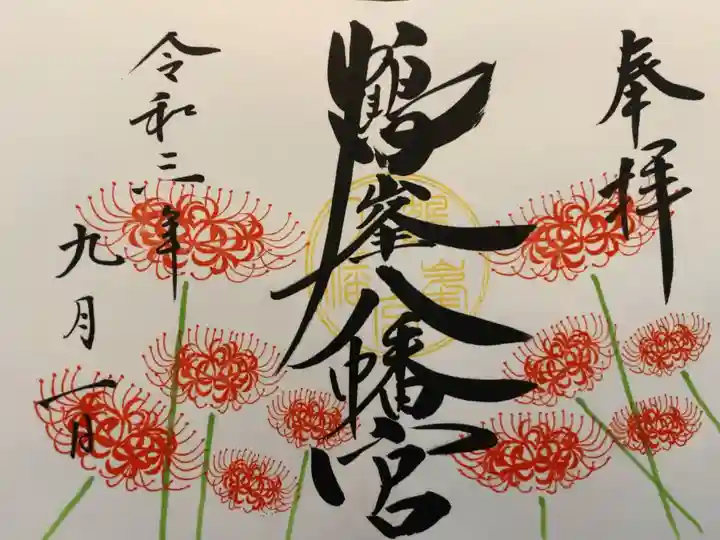 奉拝
鶴峯八幡宮
令和三年
九月一日